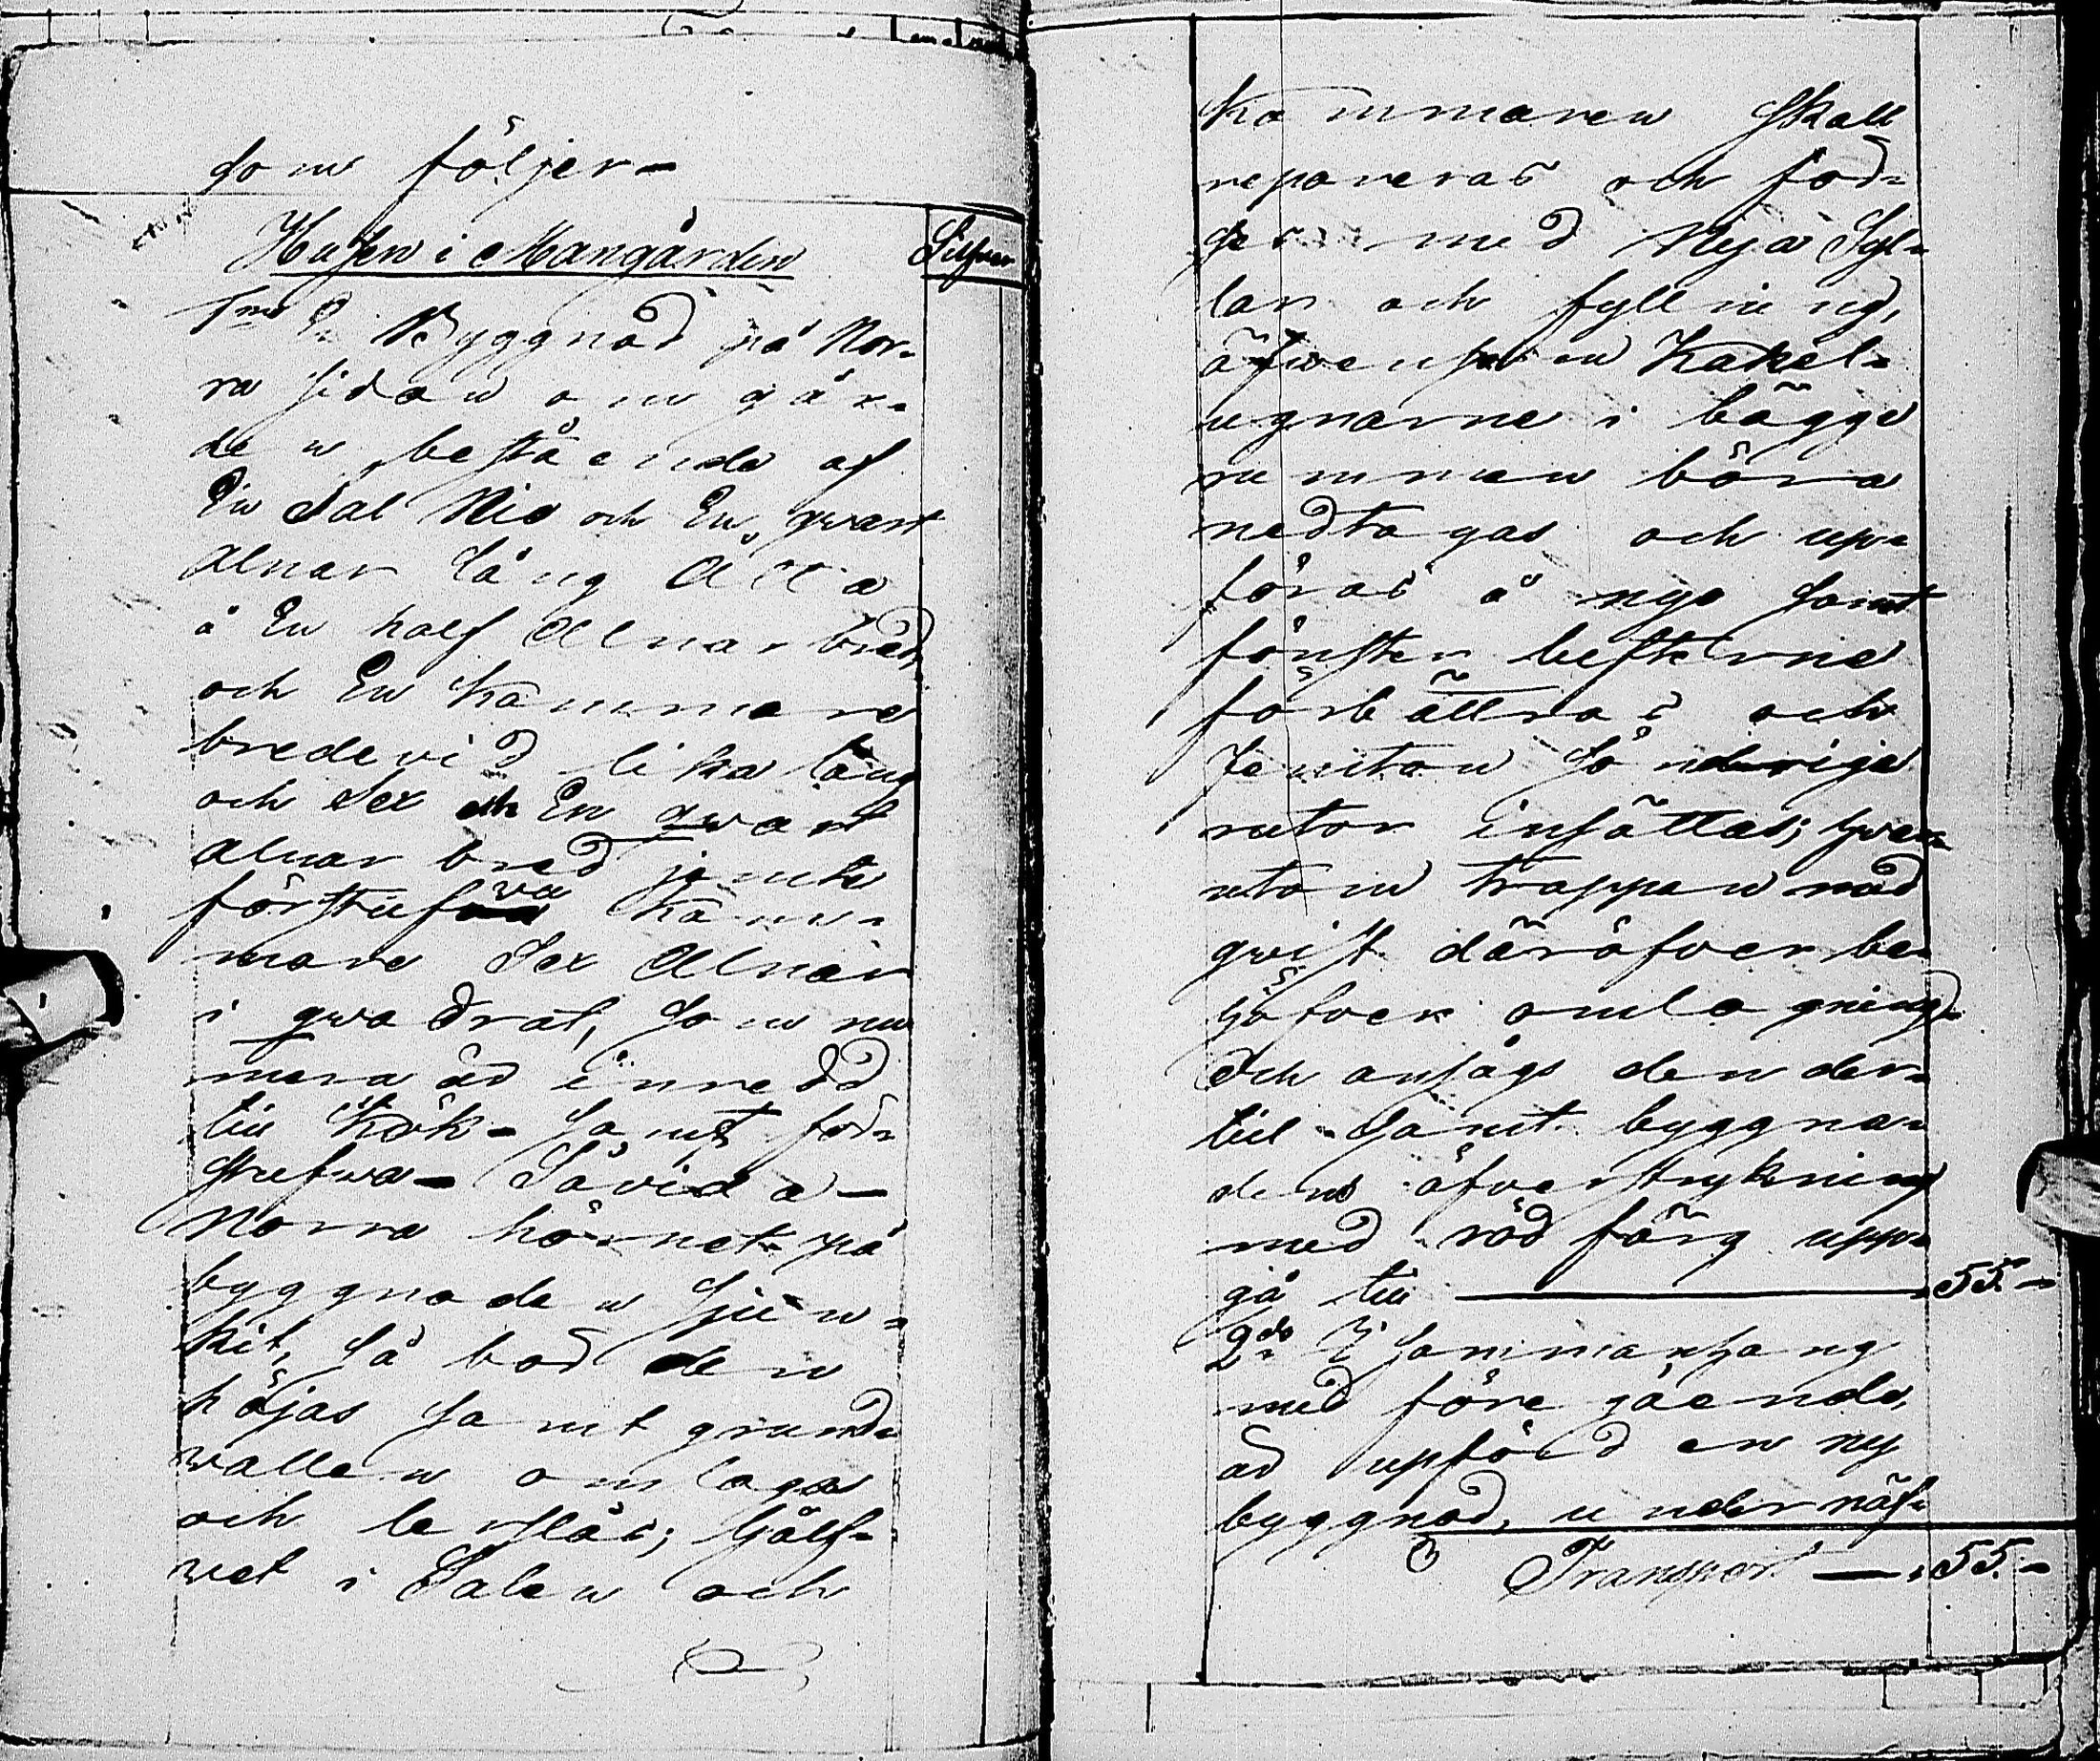 som följer-
Husen i Mangården
Silfver
1mo En Byggnad på Nor-
ra sidan om går-
den, bestående af
En Sal Nio och En qwart
Alnar lång Åtta
å En half Alnar bred
och En Kammare
bredevid lika lång
och Sex och En qwart
alnar bred jemte
förstufva Kam-
mare Sex Alnar
i qwadrat, som nu
mera är innredd
till Kök- samt för-
stufwa- Såvida-
Norra hörnet på
byggnaden sjun-
kit, så bör den
höjas samt grund-
wallen omlaga
och beslås; Golf-
vet i Salen och
Kammaren skall
repareras och förd-
ses med Nya Syl-
lar och fyllning,
äfwen Kakel-
ugnarne i bägge
rummen böra
nedtagas och up-
föras å nyo samt
fönster lufterne
förbättras och
femton sönderige
rutor insättas; hvar-
utom trappan med
qvist däröfver be-
höfver omlagning-
Och ansågs den der-
till samt byggna-
dens öfverstrykning
med röd färg upp-
gå till — 55.-
2do I sammanhang
medföregående,
är upförd en ny
byggnad, under näf-
Transport — 55.-